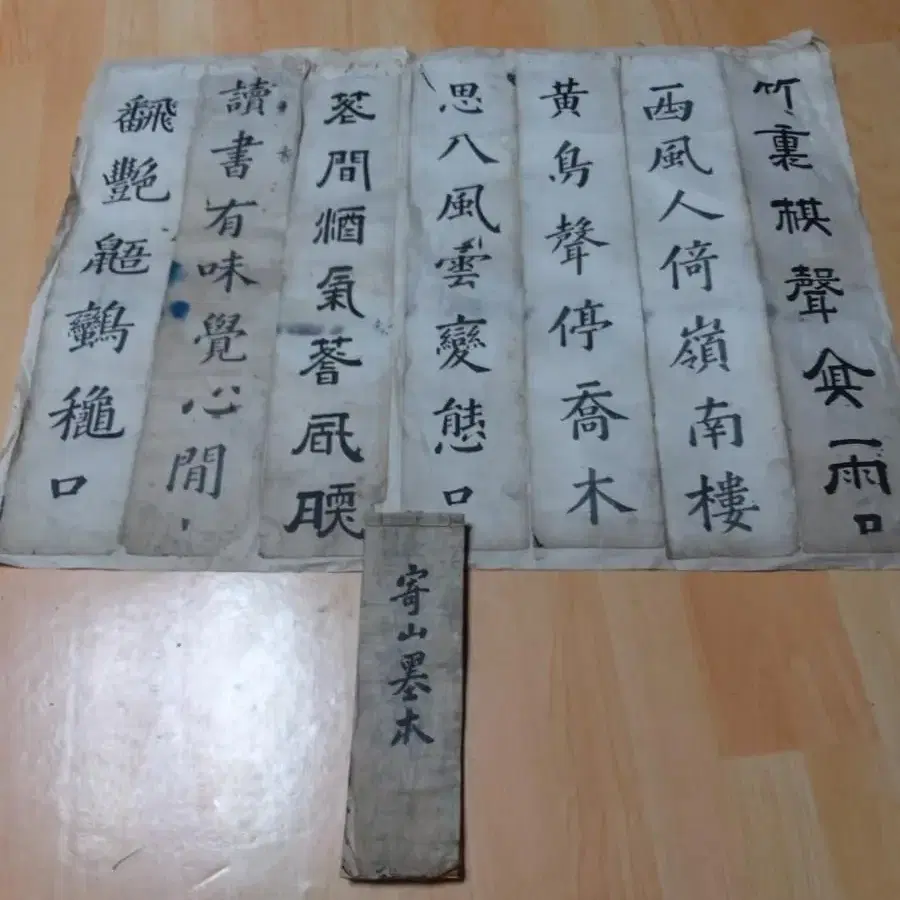 竹裏棋聲雨口
西風人倚嶺南樓
黃鳥聲停喬木
思入風雲變態口
間酒氣風暖
讀書有味覺心閒
飜艷鼯鸞龝口
寄山墨本